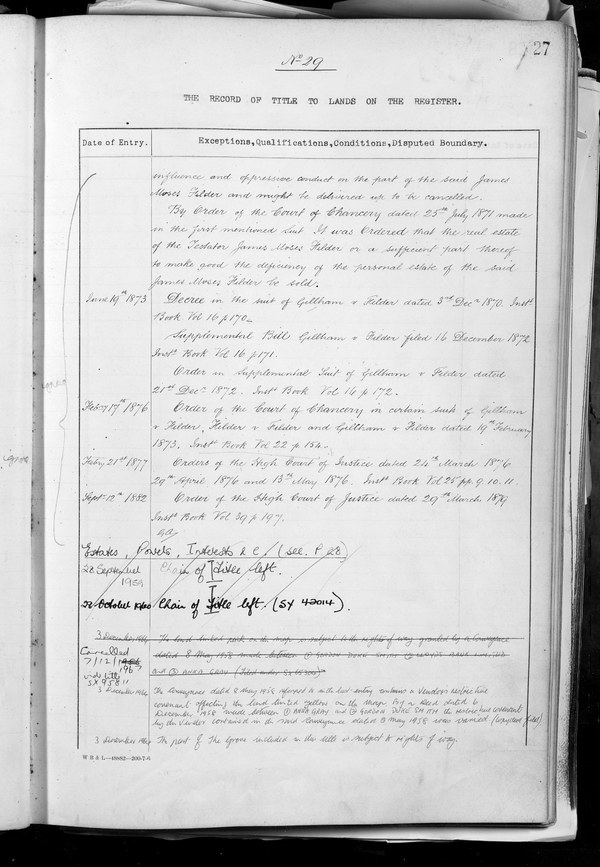 No 29
27
THE RECORD OF TITLE TO LANDS ON THE REGISTER.
Date of Entry.
Exceptions,Qualifications,Conditions,Disputed Boundary.
influence and oppressive conduct on the part of the said James
Moses Felder and might be delivered up to be cancelled.
By Order of the Court of Chancery dated 25th July 1871 made
in the first mentioned Suit It was Ordered that the real estate
of the Testator James Moses Felder or a sufficient part thereof
to make good the deficiency of the personal estate of the said
James Moses Felder be sold.
June 19th 1873 Decree in the suit of Gillham v Felder dated 3rd Decr 1870. Instt
Book Vol 16 p 170
Supplemental Bill Gillham v Felder filed 16 December 1872
Instt Book Vol 16 p 171.
Order in Supplemental Suit of Gillham v Felder dated
21st Decr 1872. Instt Book Vol 16 p 172.
Feby 17th 1876 Order of the Court of Chancery in certain suits of Gillham
v Felder, Felder v Felder and Gillham v Felder dated 19th February
1873. Instt Book Vol 22 p 154
Feby 21st 1877 Orders of the High Court of Justice dated 24th March 1876
29th April 1876 and 13th May 1876. Instt Book Vol 25 pp. 9. 10. 11.
Sept 12th 1882 Order of the High Court of Justice dated 29th March 1879
Instt Book Vol 29 p 197.
Estates, Powers, Interests & C. (see P 28)
28 September 1959 Chain of Title left.
22 October 1960 Chain of Title left. (SX 42014).
3 December 1964 The land tinted pink on the map is subject to the rights of way granted by a Conveyance
dated 8 May 1958 made between
and
Cancelled
7/12/
1967
vide title
SX 95811
3 December 1964 The Conveyance dated 8 May 1958 referred to in the last entry contains a Vendor's restrictive
covenant affecting the land tinted yellow on the map. By a Deed dated 6
December 1958 made between (1) and (2) the restrictive covenant
by the Vendor contained in the said Conveyance dated 8 May 1958 was varied
3 December 1964 The part of The included in this title is subject to rights of way.
W B & L